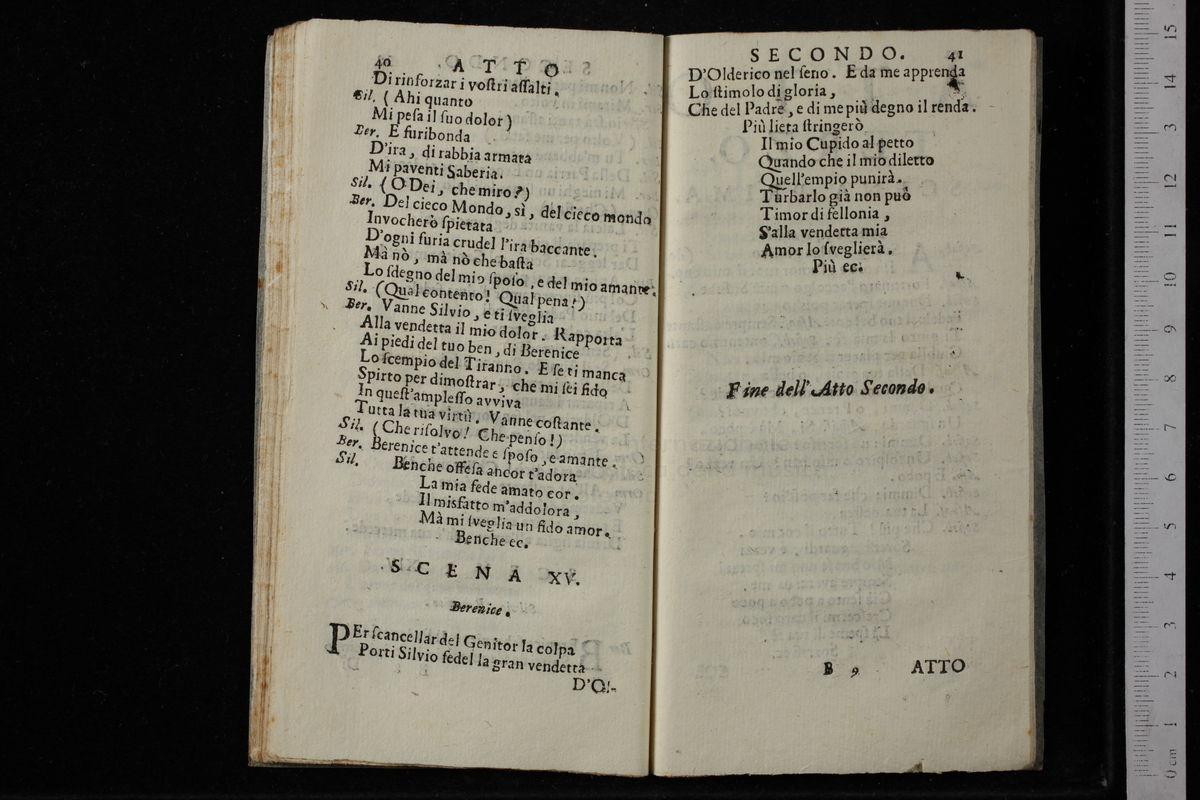 40 ATTO
Di rinforzar i voſtri aſſalti.
Sil. (Ahi quanto
Mi peſa il ſuo dolor)
Ber. E furibonda
D'ira, di rabbia armata
Mi paventi Saberia.
Sil. (O Dei, che miro?)
Ber. Del cieco Mondo, sì, del cieco mondo
Invocherò ſpietata
D'ogni furia crudel l'ira baccante.
Mà nò, mà nò che baſta
Lo ſdegno del mio ſpoſo, e del mio amante.
Sil. (Qual contento! Qual pena!)
Ber. Vanne Silvio, e ti ſveglia
Alla vendetta il mio dolor. Rapporta
Ai piedi del tuo ben, di Berenice
Lo ſcempio del Tiranno. E ſe ti manca
Spirto per dimoſtrar, che mi ſei fido
In queſt'ampleſſo avviva
Tutta la tua virtù. Vanne coſtante.
Sil. (Che riſolvo! Che penſo!)
Ber. Berenice t'attende e ſpoſo, e amante.
Sil. Benche offeſa ancor t'adora
La mia fede amato cor.
Il misfatto m'addolora,
Mà mi ſveglia un fido amor.
Benche ec.
SCENA XV.
Berenice.
PEr ſcancellar del Genitor la colpa
Porti Silvio fedel la gran vendetta
D'Ol-
SECONDO. 41
D'Olderico nel ſeno. E da me apprenda
Lo ſtimolo di gloria,
Che del Padre, e di me più degno il renda.
Più lieta ſtringerò
Il mio Cupido al petto
Quando che il mio diletto
Quell'empio punirà.
Turbarlo già non può
Timor di fellonia,
S'alla vendetta mia
Amor lo ſveglierà.
Più ec.
Fine dell'Atto Secondo.
B 9 ATTO
0 cm 1 2 3 4 5 6 7 8 9 10 11 12 13 14 15